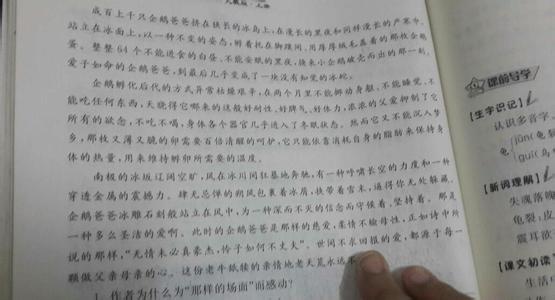 成百上千只企鹅爸爸挤在狭长的冰岛上,在漫长的黑夜和同样漫长的严寒中,
站立在冰面上,以一种不变的姿态,孵着托在脚蹼间、用厚厚绒毛盖着的那枚企鹅
蛋。整整64个不能进食的白昼、不能安眠的黑夜,换来小企鹅破壳而出的那一刻,
爱子如命的企鹅爸爸,到最后几乎变成了一块没有知觉的冰砣。
企鹅孵化后代的方式异常枯燥艰辛,在两个月里不能挪动身躯,不能睡觉,不
能吃任何东西,天晓得它哪来的这般好耐性、好脾气、好体力,浓浓的父爱抑制了它
所有的欲念,不吃不喝,身体各个器官几乎进入了冬眠状态。然而它又不能沉入梦
乡,那枚又薄又脆的卵需要百倍清醒的呵护,它只能依靠消耗自身的脂肪来保持身
体的热量,用来维持孵卵所需要的温度。
南极的冰坂辽阔空旷,风在冰川间狂暴地奔驰,有一种呼啸长空的力度和一种
穿透金属的震撼力。肆无忌惮的朔风包裹着冰屑,挟带着雪末,逼得你无处躲藏。
企鹅爸爸冰雕石刻般站立在风中,为一种深而不灭的信念而守候着,坚持着。那是
一种多么圣洁的爱啊。此时的企鹅爸爸是那样的慈爱,柔情不输母性,正如诗中所
说的那样,“无情未必真豪杰,怜子如何不丈夫”。世间不求回报的爱,都源于每一
颗做父亲母亲的心。这份老牛舐犊的亲情地老天荒永远不
1. 作者为什么为“那样的场面”而感动?
课前导学
【生字识记】
认识多音字。
龟
jūn(龟
guī(乌
【新词理解】
失魂落魄
龟裂:皮
震耳欲
【课文初读】
生活